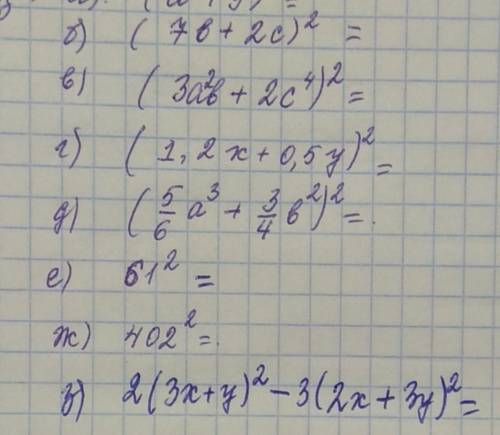 б) (7в + 2с)² =
в) (3а²в + 2с⁴)² =
г) (1,2х + 0,5у)² =
д) (5/6 а³ + 3/4 в²)² = .
е) 61² =
ж) 402² = .
з) 2(3х+у)² − 3(2х + 3у)² =